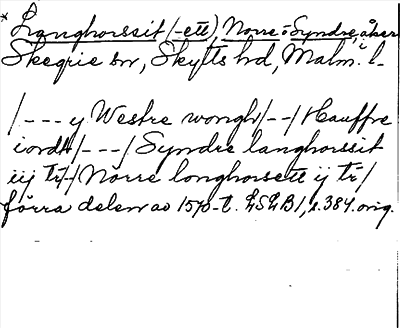 * Langhorssit (-ett), Norre o Syndre, åker i
Skegrie sn, Skytts hd, Malm. l.
/--- y Westre wongh/--/Hauffre
iordt/---/Syndre langhorssit
iij tr/-/Nörre longhorsett ij tr/
förra delen av 1570-t. LSLB1, s.384. orig.